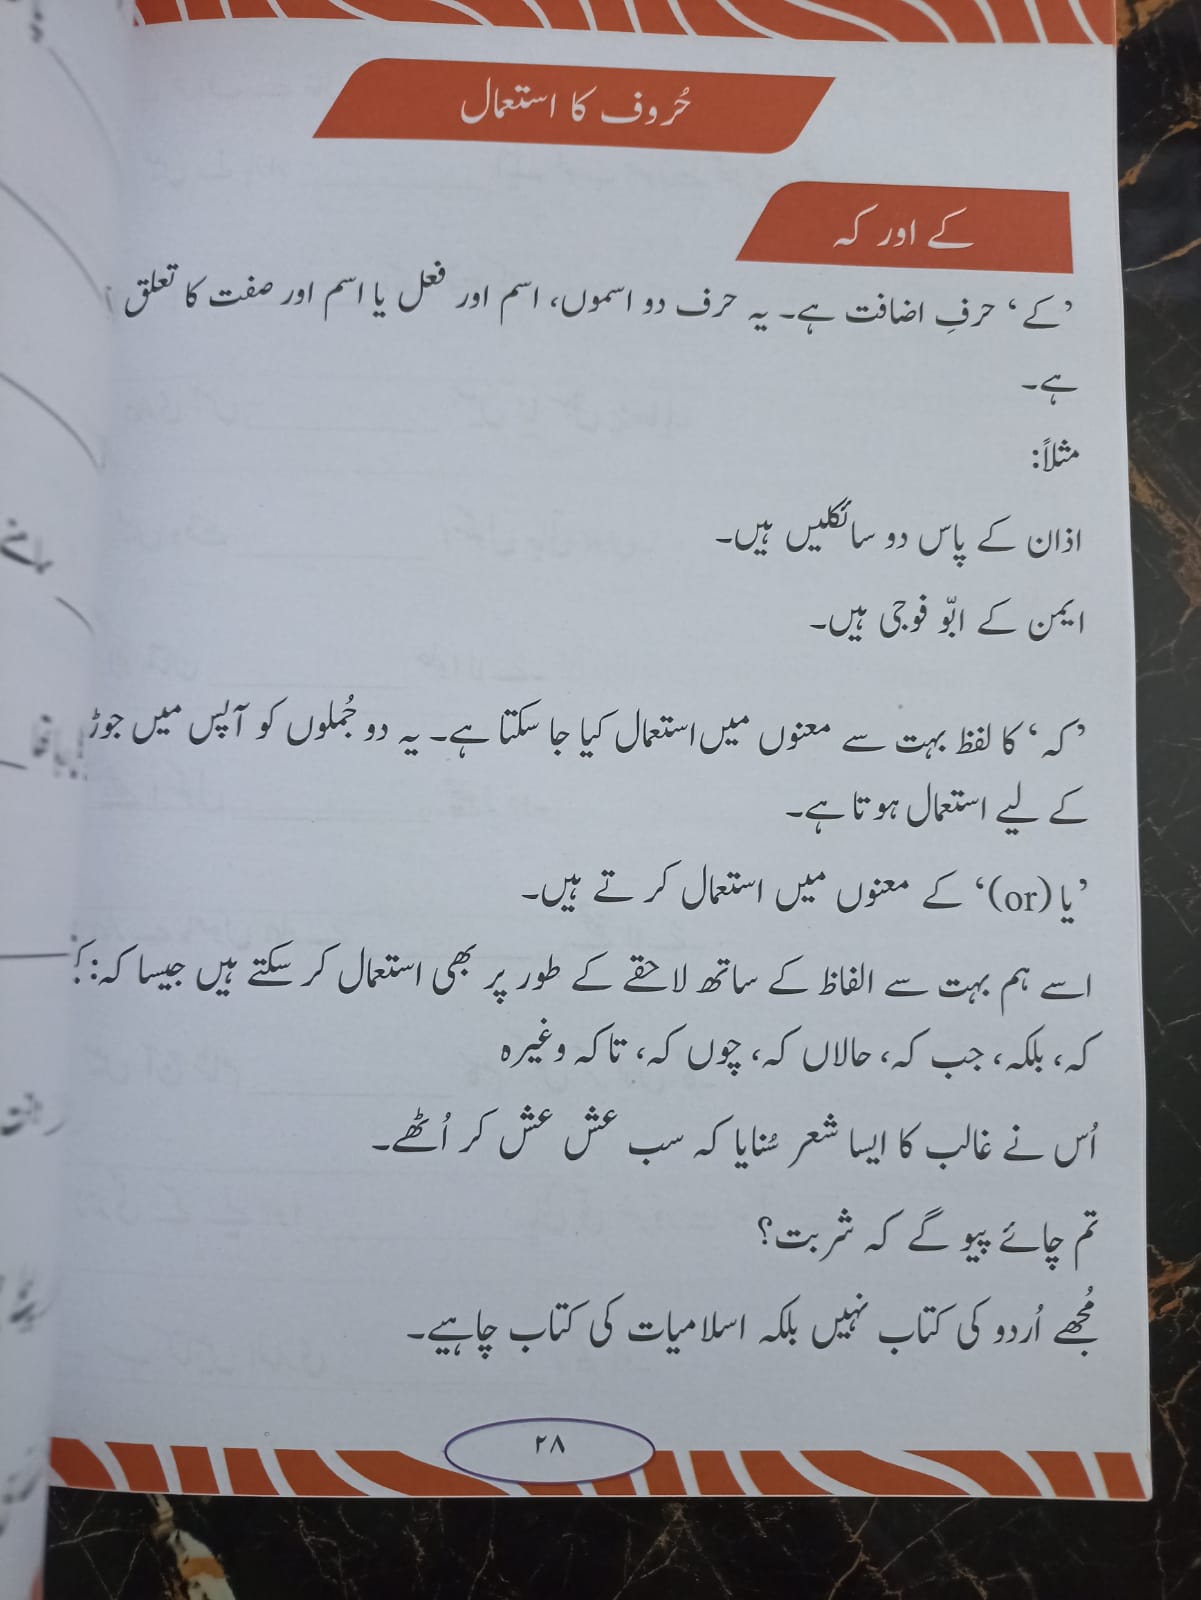 حُروف کا استعمال
کے اور کہ
’کے‘ حرفِ اضافت ہے۔ یہ حرف دو اسموں، اسم اور فعل یا اسم اور صفت کا تعلق
ہے۔
مثلاً:
اذان کے پاس دو سائکلیں ہیں۔
ایمن کے ابّو فوجی ہیں۔
’کہ‘ کا لفظ بہت سے معنوں میں استعمال کیا جا سکتا ہے۔ یہ دو جُملوں کو آپس میں جوڑ
کے لیے استعمال ہوتا ہے۔
’یا (or)‘ کے معنوں میں استعمال کرتے ہیں۔
اسے ہم بہت سے الفاظ کے ساتھ لاحقے کے طور پر بھی استعمال کر سکتے ہیں جیسا کہ:
کہ، بلکہ، جب کہ، حالاں کہ، چوں کہ، تاکہ وغیرہ
اُس نے غالب کا ایسا شعر سُنایا کہ سب عش عش کر اُٹھے۔
تم چائے پیو گے کہ شربت؟
مُجھے اُردو کی کتاب نہیں بلکہ اسلامیات کی کتاب چاہیے۔
۲۸